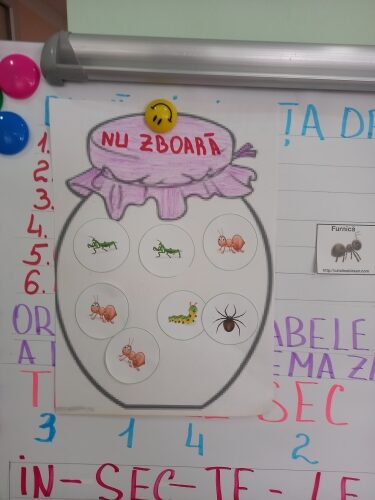 ȚA DE
NU ZBOARĂ
1.
2.
3.
4.
5.
6.
Furnică
OR ABELE
A EMA ZA
T SEC
3 1 4 2
IN-SEC-TE-LE